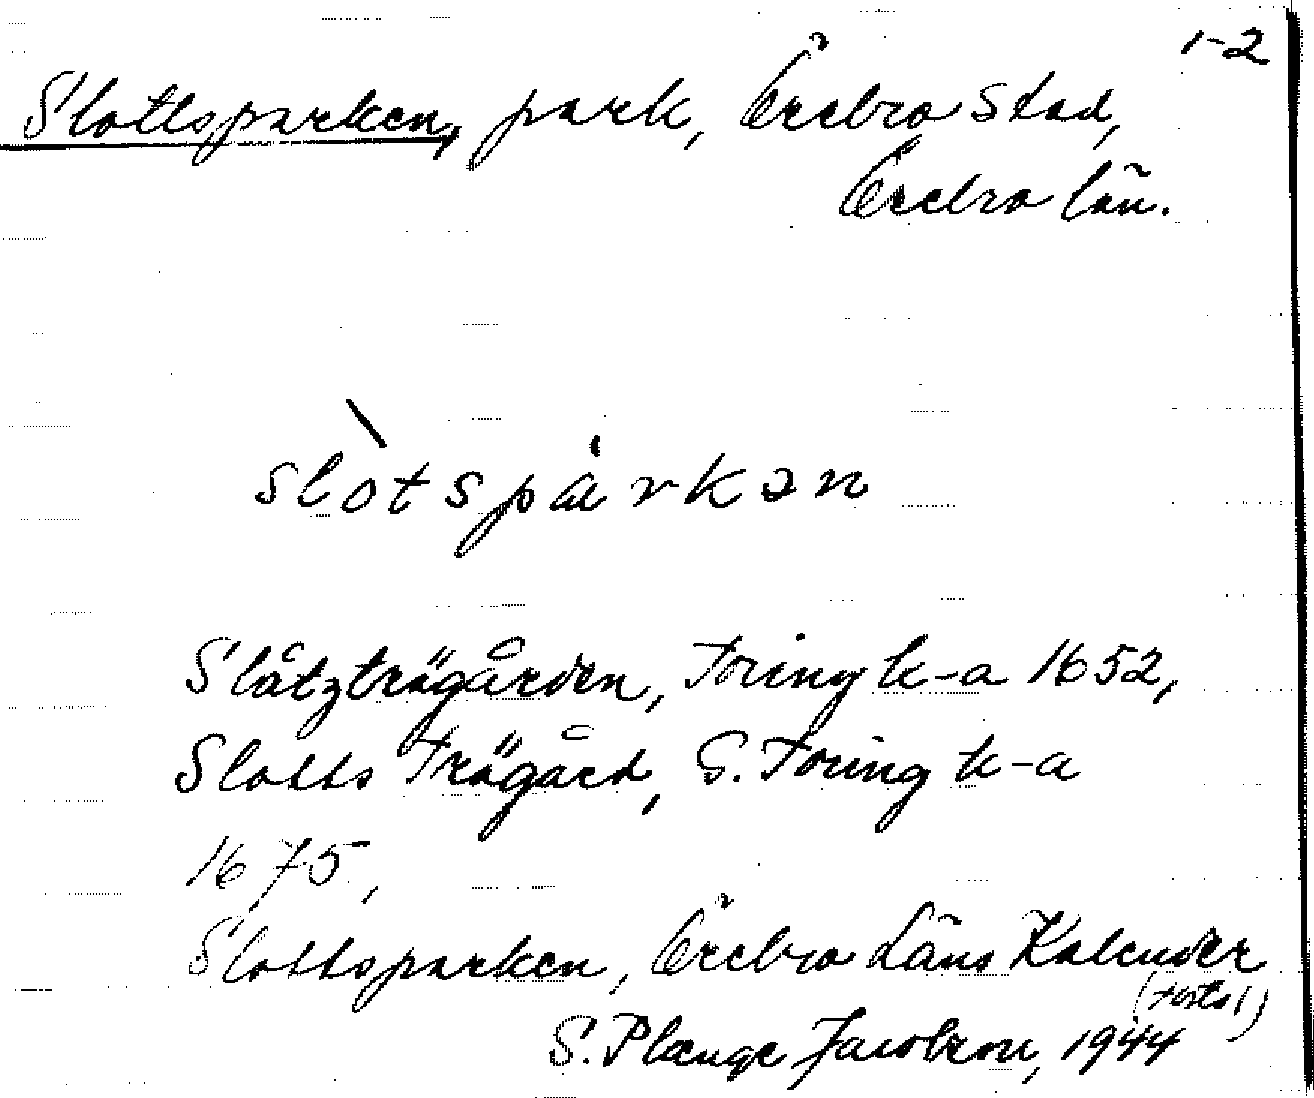 1-2
Slottsparken, park, Örebro stad,
Örebro län.
slòtspárkən
Slåtzträgården, Toring k-a 1652,
Slotts Trägård, S. Toring k-a
1675,
Slottsparken, Örebro Läns Kalender
(forts!)
S. Plænge Jacobson, 1944